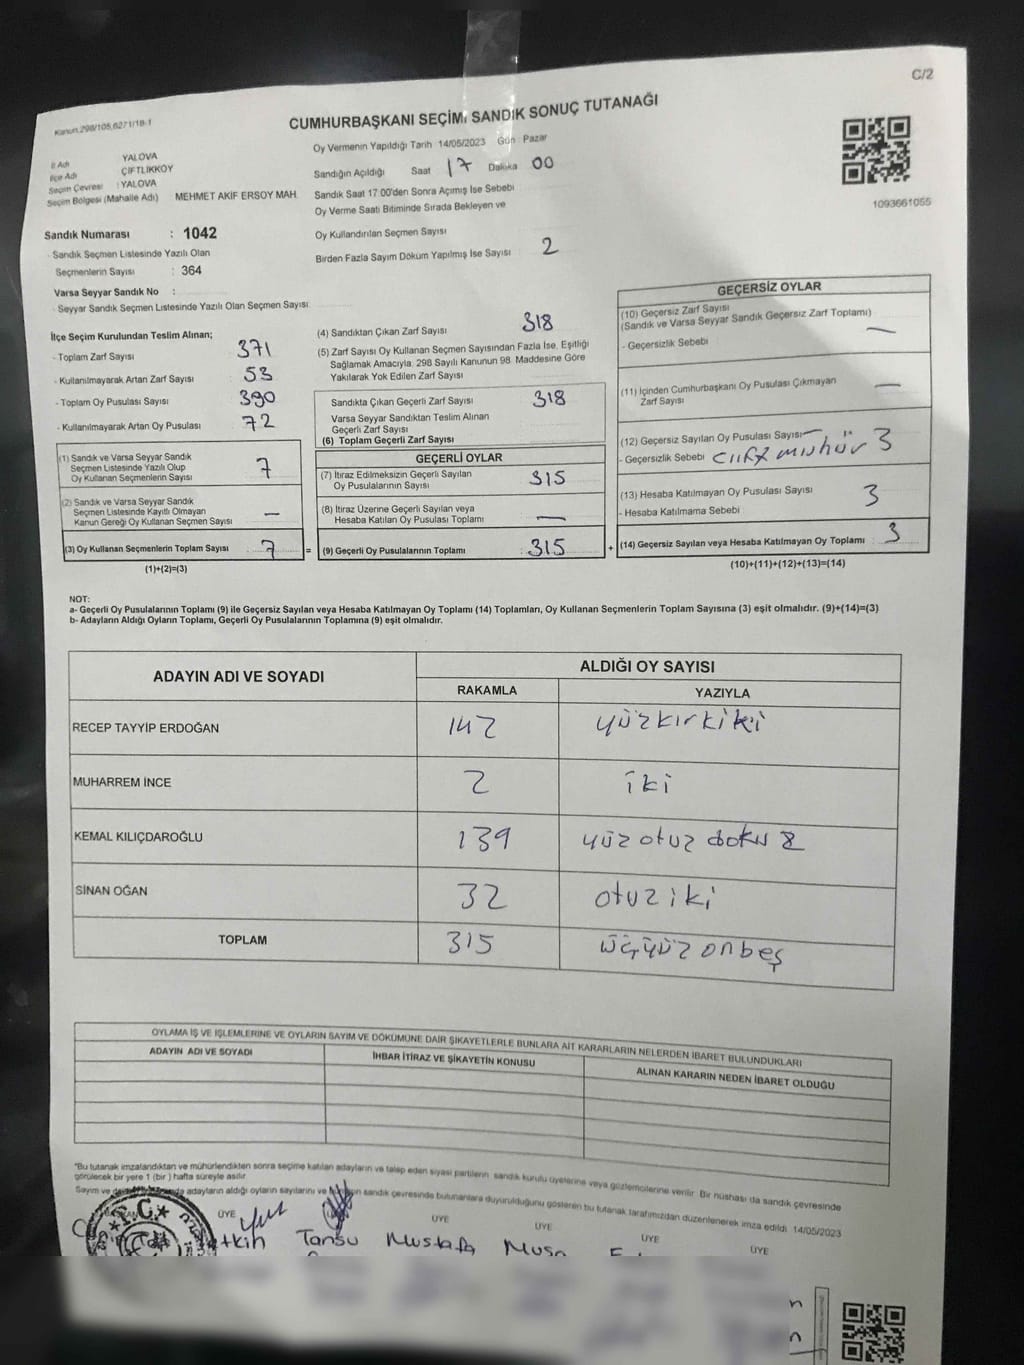 C/2
Kanun.298/105,6271/18-1
CUMHURBAŞKANI SEÇİMİ SANDIK SONUÇ TUTANAĞI
İl Adı YALOVA
İlçe Adı ÇİFTLİKKÖY
Seçim Çevresi : YALOVA
Seçim Bölgesi (Mahalle Adı) MEHMET AKİF ERSOY MAH.
Oy Vermenin Yapıldığı Tarih 14/05/2023 Gün : Pazar
Sandığın Açıldığı Saat 17 Dakika 00
Sandık Saat 17.00'den Sonra Açımış İse Sebebi
Oy Verme Saati Bitiminde Sırada Bekleyen ve
Oy Kullandırılan Seçmen Sayısı
Birden Fazla Sayım Döküm Yapılmış İse Sayısı : 2
1093661055
Sandık Numarası : 1042
- Sandık Seçmen Listesinde Yazılı Olan
Seçmenlerin Sayısı : 364
Varsa Seyyar Sandık No :
- Seyyar Sandık Seçmen Listesinde Yazılı Olan Seçmen Sayısı:
İlçe Seçim Kurulundan Teslim Alınan;
- Toplam Zarf Sayısı 371
- Kullanılmayarak Artan Zarf Sayısı 53
- Toplam Oy Pusulası Sayısı 390
- Kullanılmayarak Artan Oy Pusulası 72
(1) Sandık ve Varsa Seyyar Sandık
Seçmen Listesinde Yazılı Olup
Oy Kullanan Seçmenlerin Sayısı 7
(2) Sandık ve Varsa Seyyar Sandık
Seçmen Listesinde Kayıtlı Olmayan
Kanun Gereği Oy Kullanan Seçmen Sayısı —
(3) Oy Kullanan Seçmenlerin Toplam Sayısı 7 =
(1)+(2)=(3)
(4) Sandıktan Çıkan Zarf Sayısı 318
(5) Zarf Sayısı Oy Kullanan Seçmen Sayısından Fazla İse, Eşitliği
Sağlamak Amacıyla, 298 Sayılı Kanunun 98. Maddesine Göre
Yakılarak Yok Edilen Zarf Sayısı
Sandıkta Çıkan Geçerli Zarf Sayısı 318
Varsa Seyyar Sandıktan Teslim Alınan
Geçerli Zarf Sayısı
(6) Toplam Geçerli Zarf Sayısı
GEÇERLİ OYLAR
(7) İtiraz Edilmeksizin Geçerli Sayılan
Oy Pusulalarının Sayısı 315
(8) İtiraz Üzerine Geçerli Sayılan veya
Hesaba Katılan Oy Pusulası Toplamı —
(9) Geçerli Oy Pusulalarının Toplamı : 315 +
GEÇERSİZ OYLAR
(10) Geçersiz Zarf Sayısı
(Sandık ve Varsa Seyyar Sandık Geçersiz Zarf Toplamı) —
- Geçersizlik Sebebi
(11) İçinden Cumhurbaşkanı Oy Pusulası Çıkmayan
Zarf Sayısı —
(12) Geçersiz Sayılan Oy Pusulası Sayısı
- Geçersizlik Sebebi mühür 3
(13) Hesaba Katılmayan Oy Pusulası Sayısı 3
- Hesaba Katılmama Sebebi
(14) Geçersiz Sayılan veya Hesaba Katılmayan Oy Toplamı : 3
(10)+(11)+(12)+(13)=(14)
NOT:
a- Geçerli Oy Pusulalarının Toplamı (9) ile Geçersiz Sayılan veya Hesaba Katılmayan Oy Toplamı (14) Toplamları, Oy Kullanan Seçmenlerin Toplam Sayısına (3) eşit olmalıdır. (9)+(14)=(3)
b- Adayların Aldığı Oyların Toplamı, Geçerli Oy Pusulalarının Toplamına (9) eşit olmalıdır.
ADAYIN ADI VE SOYADI ALDIĞI OY SAYISI
RAKAMLA YAZIYLA
RECEP TAYYİP ERDOĞAN 142 yüzkırkiki
MUHARREM İNCE 2 iki
KEMAL KILIÇDAROĞLU 139 yüz otuz dokuz
SİNAN OĞAN 32 otuz iki
TOPLAM 315 üçyüz onbeş
OYLAMA İŞ VE İŞLEMLERİNE VE OYLARIN SAYIM VE DÖKÜMÜNE DAİR ŞİKAYETLERLE BUNLARA AİT KARARLARIN NELERDEN İBARET BULUNDUKLARI
ADAYIN ADI VE SOYADI İHBAR İTİRAZ VE ŞİKAYETİN KONUSU ALINAN KARARIN NEDEN İBARET OLDUĞU
"Bu tutanak imzalandıktan ve mühürlendikten sonra seçime katılan adayların ve talep eden siyasi partilerin sandık kurulu üyelerine veya gözlemcilerine verilir. Bir nüshası da sandık çevresinde
görülecek bir yere 1 (bir) hafta süreyle asılır.
Sayım ve adayların aldığı oyların sayılarını ve sandık çevresinde bulunanlara duyurulduğunu gösteren bu tutanak tarafımızdan düzenlenerek imza edildi. 14/05/2023
ÜYE ÜYE ÜYE ÜYE ÜYE
T.C.
Tansu Mustafa Musa